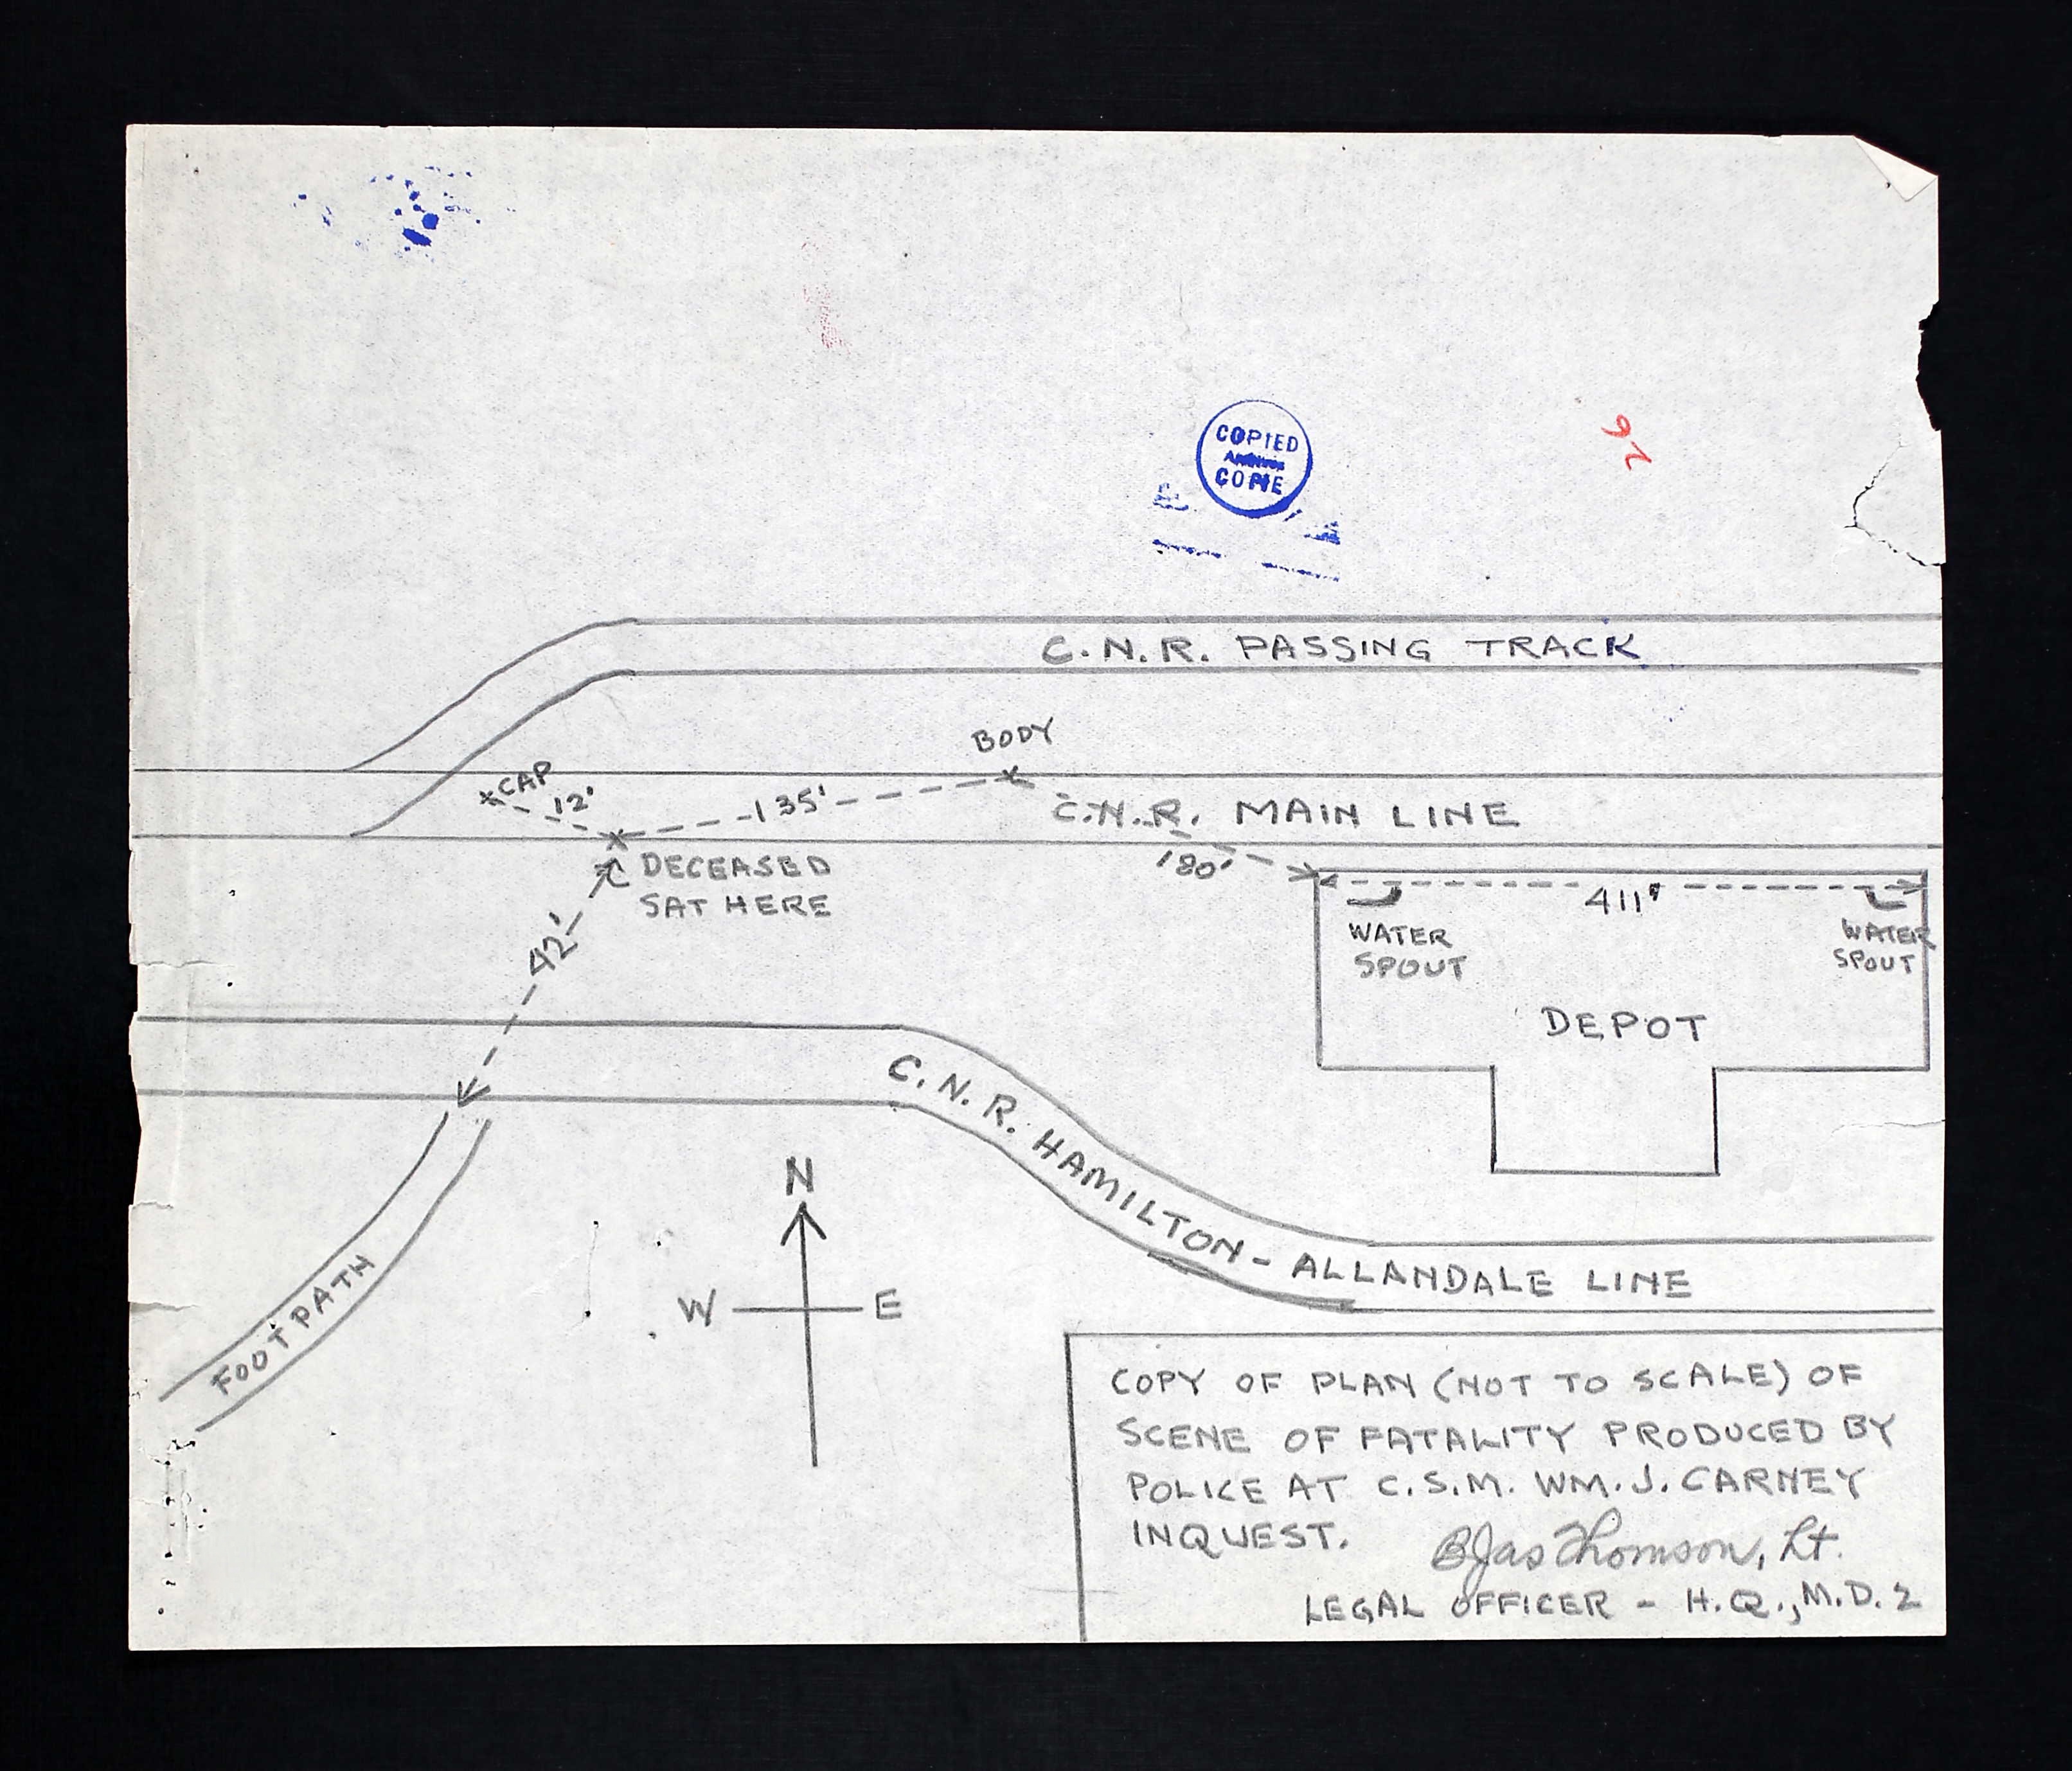 COPIED
COPIE
26
C.N.R. PASSING TRACK
BODY
CAP
12'
135'
C.N.R. MAIN LINE
180'
DECEASED
SAT HERE
42'
411'
WATER
SPOUT
WATER
SPOUT
DEPOT
C.N.R. HAMILTON - ALLANDALE LINE
N
W E
FOOTPATH
COPY OF PLAN (NOT TO SCALE) OF
SCENE OF FATALITY PRODUCED BY
POLICE AT C.S.M. WM. J. CARNEY
INQUEST.
BJas Thomson, Lt.
LEGAL OFFICER - H.Q., M.D. 2